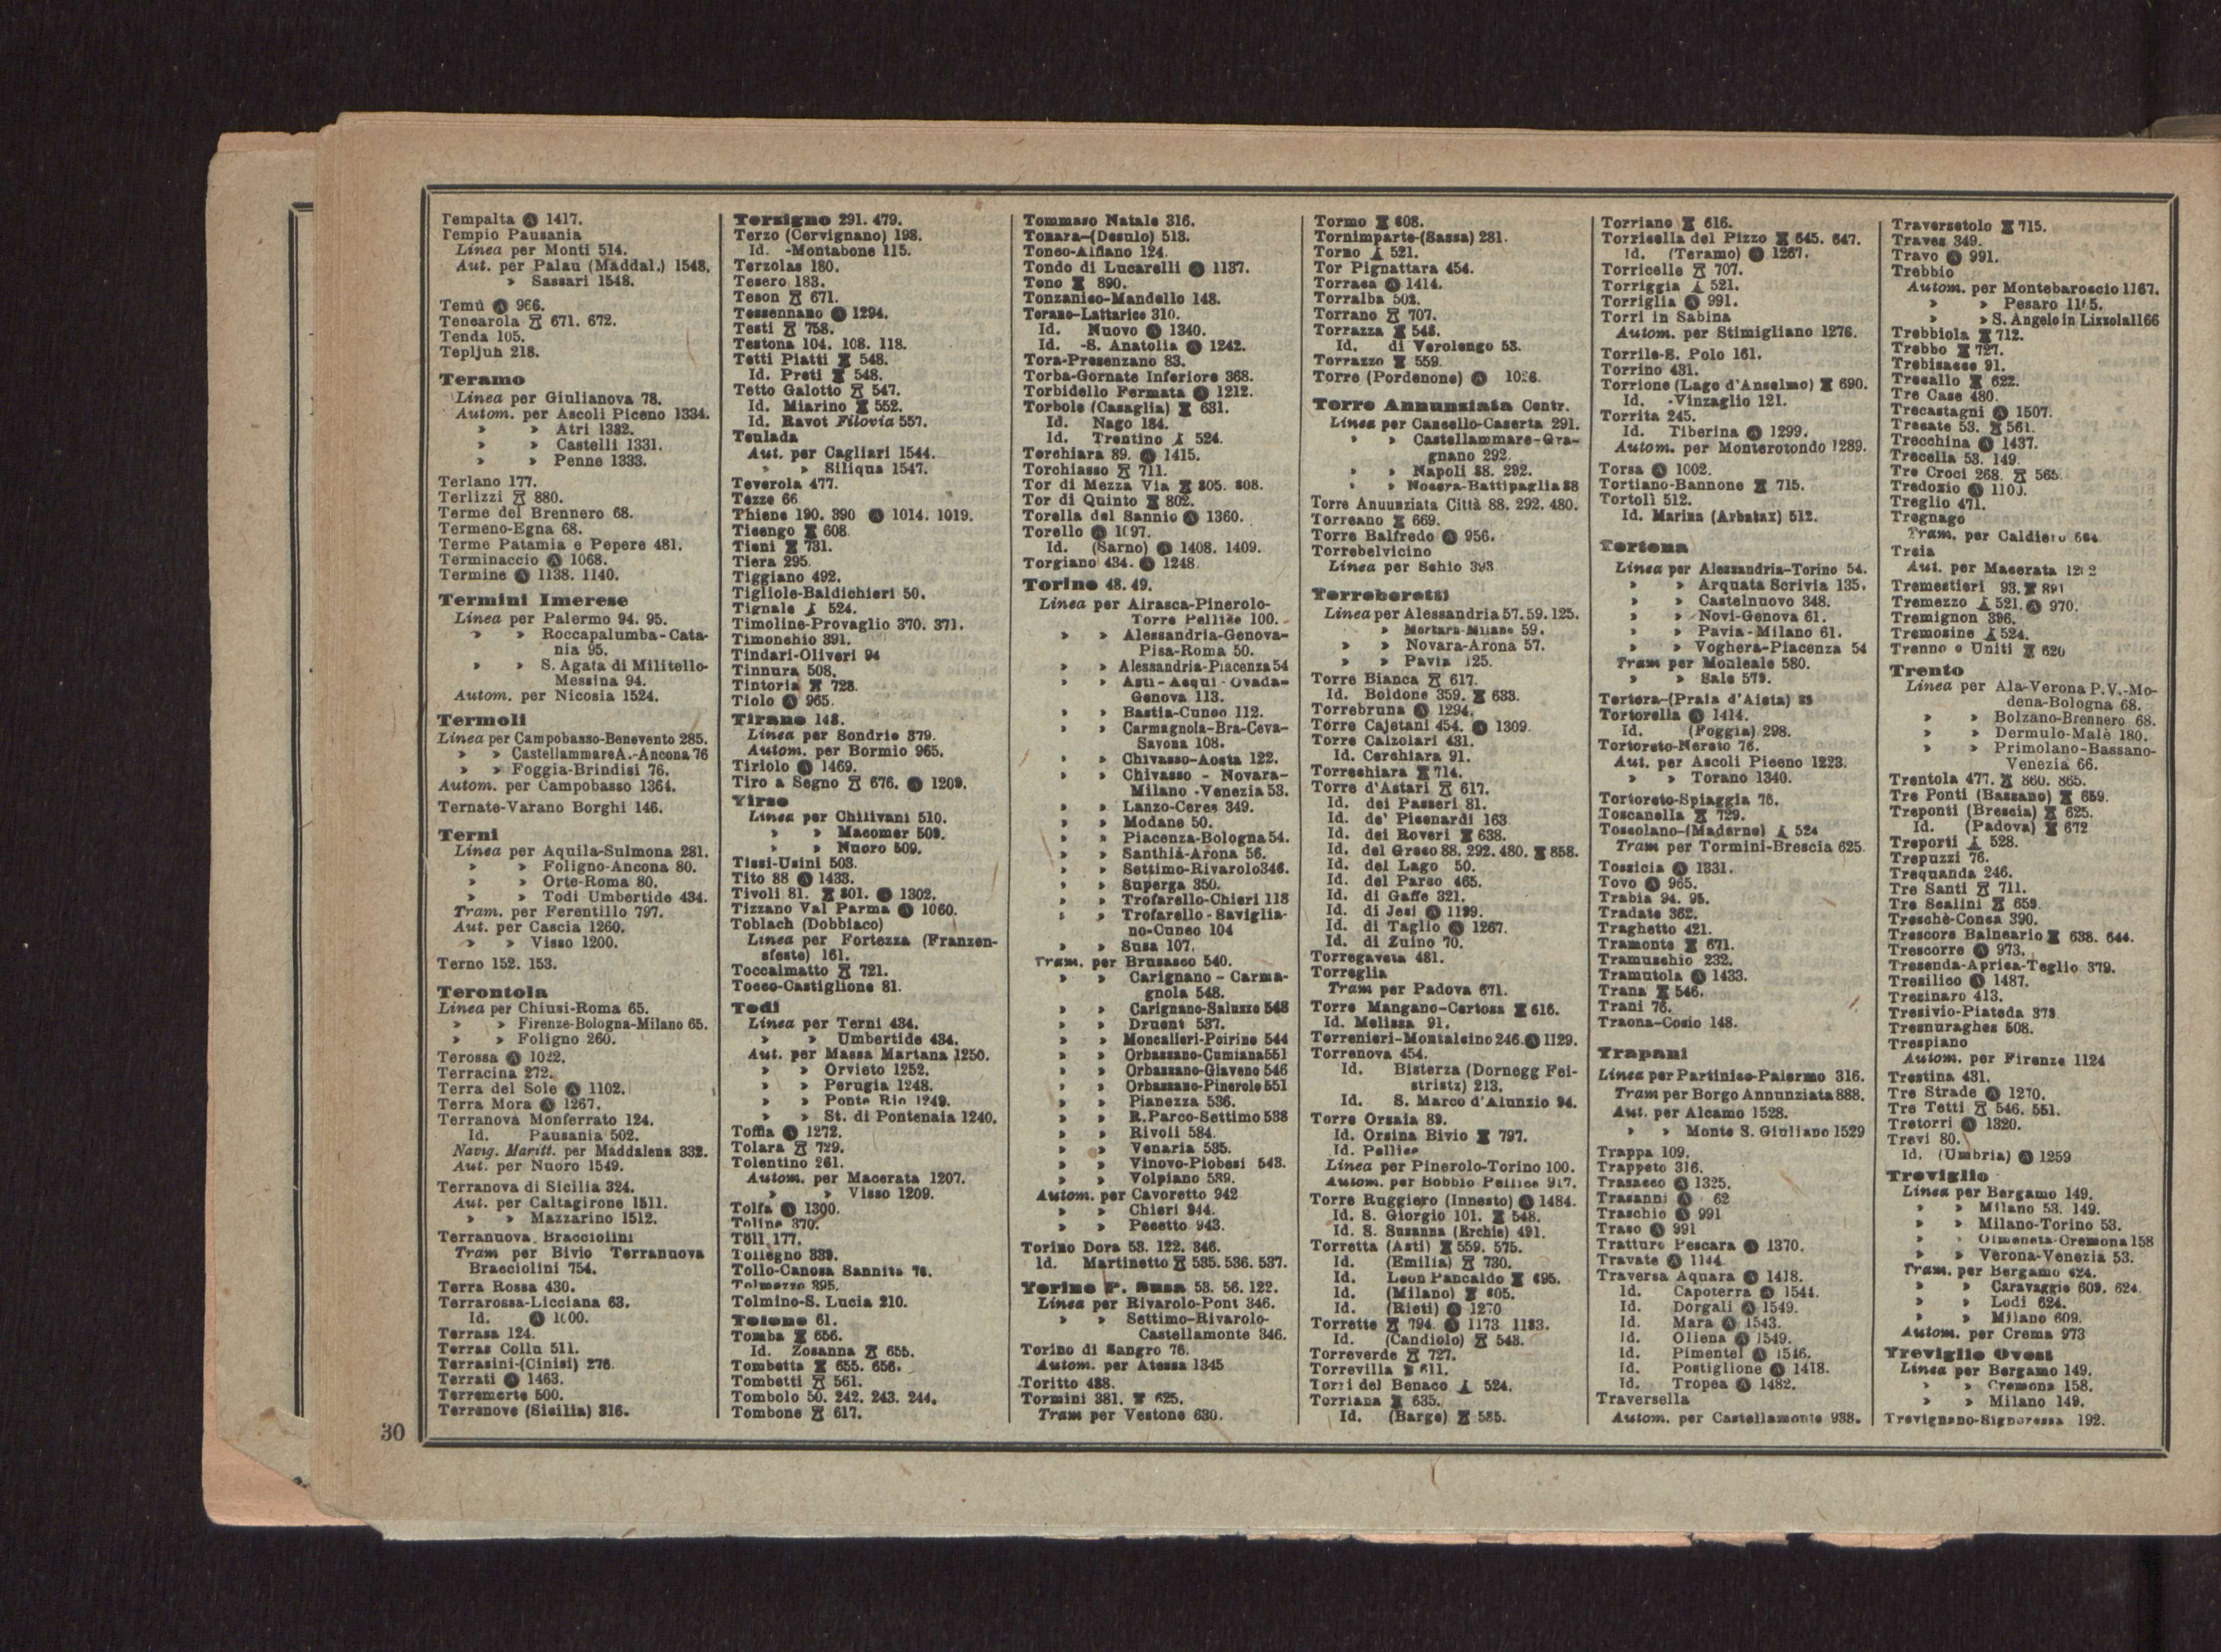 Tempalta 1417.
Tempio Pausania
Linea per Monti 514.
Aut. per Palau (Maddal.) 1548.
» Sassari 1548.
Temù 966.
Tencarola 671. 672.
Tenda 105.
Tepljuh 218.
Teramo
Linea per Giulianova 78.
Autom. per Ascoli Piceno 1334.
» » Atri 1332.
» » Castelli 1331.
» » Penne 1333.
Terlano 177.
Terlizzi 880.
Terme del Brennero 68.
Termeno-Egna 68.
Terme Patamia e Pepere 481.
Terminaccio 1068.
Termine 1138. 1140.
Termini Imerese
Linea per Palermo 94. 95.
» » Roccapalumba-Cata-
nia 95.
» » S. Agata di Militello-
Messina 94.
Autom. per Nicosia 1524.
Termoli
Linea per Campobasso-Benevento 285.
» » Castellammare A.-Ancona 76
» » Foggia-Brindisi 76.
Autom. per Campobasso 1364.
Ternate-Varano Borghi 146.
Terni
Linea per Aquila-Sulmona 281.
» » Foligno-Ancona 80.
» » Orte-Roma 80.
» » Todi Umbertide 434.
Tram. per Ferentillo 797.
Aut. per Cascia 1260.
» » Visso 1200.
Terno 152. 153.
Terontola
Linea per Chiusi-Roma 65.
» » Firenze-Bologna-Milano 65.
» » Foligno 260.
Terossa 1022.
Terracina 272.
Terra del Sole 1102.
Terra Mora 1267.
Terranova Monferrato 124.
Id. Pausania 502.
Navig. Maritt. per Maddalena 332.
Aut. per Nuoro 1549.
Terranova di Sicilia 324.
Aut. per Caltagirone 1511.
» » Mazzarino 1512.
Terranuova Bracciolini
Tram per Bivio Terranuova
Bracciolini 754.
Terra Rossa 430.
Terrarossa-Licciana 63.
Id. 1000.
Terrasa 124.
Terras Collu 511.
Terrasini-(Cinisi) 276.
Terrati 1463.
Terremorte 500.
Terrenove (Sicilia) 316.
Terzigno 291. 479.
Terzo (Cervignano) 198.
Id. -Montabone 115.
Terzolas 180.
Tesero 183.
Teson 671.
Tessennano 1294.
Testi 758.
Testona 104. 108. 118.
Tetti Piatti 548.
Id. Preti 548.
Tetto Galotto 547.
Id. Miarino 552.
Id. Ravot Filovia 557.
Teulada
Aut. per Cagliari 1544.
» » Siliqua 1547.
Teverola 477.
Tezze 66
Thiene 190. 390 1014. 1019.
Ticengo 608
Tieni 731.
Tiera 295.
Tiggiano 492.
Tigliole-Baldichieri 50.
Tignale 524.
Timoline-Provaglio 370. 371.
Timonchio 391.
Tindari-Oliveri 94
Tinnura 508.
Tintoria 728.
Tiolo 965.
Tirano 148.
Linea per Sondrio 379.
Autom. per Bormio 965.
Tiriolo 1469.
Tiro a Segno 676. 1209.
Tirso
Linea per Chilivani 510.
» » Macomer 509.
» » Nuoro 509.
Tissi-Usini 503.
Tito 88 1433.
Tivoli 81. 801. 1302.
Tizzano Val Parma 1060.
Toblach (Dobbiaco)
Linea per Fortezza (Franzen-
sfeste) 161.
Toccalmatto 721.
Tocco-Castiglione 81.
Todi
Linea per Terni 434.
» » Umbertide 434.
Aut. per Massa Martana 1250.
» » Orvieto 1252.
» » Perugia 1248.
» » Ponte Rio 1249.
» » St. di Pontenaia 1240.
Toffia 1272.
Tolara 729.
Tolentino 261.
Autom. per Macerata 1207.
» » Visso 1209.
Tolfa 1300.
Toline 370.
Töll 177.
Tollegno 339.
Tollo-Canosa Sannita 76.
Tolmezzo 395.
Tolmino-S. Lucia 210.
Tolone 61.
Tomba 656.
Id. Zosanna 655.
Tombetta 655. 656.
Tombetti 561.
Tombolo 50. 242. 243. 244.
Tombone 617.
Tommaso Natale 316.
Tonara-(Desulo) 513.
Tonco-Alfiano 124.
Tondo di Lucarelli 1137.
Tono 890.
Tonzanico-Mandello 148.
Torano-Lattarico 310.
Id. Nuovo 1340.
Id. -S. Anatolia 1242.
Tora-Presenzano 83.
Torba-Gornate Inferiore 368.
Torbidello Fermata 1212.
Torbole (Casaglia) 631.
Id. Nago 184.
Id. Trentino 524.
Torchiara 89. 1415.
Torchiasso 711.
Tor di Mezza Via 805. 808.
Tor di Quinto 802.
Torella del Sannio 1360.
Torello 1097.
Id. (Sarno) 1408. 1409.
Torgiano 434. 1248
Torino 48. 49.
Linea per Airasca-Pinerolo-
Torre Pellice 100.
» » Alessandria-Genova-
Pisa-Roma 50.
» » Alessandria-Piacenza 54
» » Asti-Acqui-Ovada-
Genova 113.
» » Bastia-Cuneo 112.
» » Carmagnola-Bra-Ceva-
Savona 108.
» » Chivasso-Aosta 122.
» » Chivasso - Novara-
Milano -Venezia 53.
» » Lanzo-Ceres 349.
» » Modane 50.
» » Piacenza-Bologna 54.
» » Santhià-Arona 56.
» » Settimo-Rivarolo 346.
» » Superga 350.
» » Trofarello-Chieri 118
» » Trofarello-Saviglia-
no-Cuneo 104
» » Susa 107.
Tram. per Brusasco 540.
» » Carignano - Carma-
gnola 548.
» » Carignano-Saluzzo 548
» » Druent 537.
» » Moncalieri-Poirino 544
» » Orbassano-Cumiana 551
» » Orbassano-Giaveno 546
» » Orbassano-Pinerolo 551
» » Pianezza 536.
» » R. Parco-Settimo 538
» » Rivoli 584.
» » Venaria 535.
» » Vinovo-Piobesi 543.
» » Volpiano 539.
Autom. per Cavoretto 942
» » Chieri 944.
» » Pecetto 943.
Torino Dora 53. 122. 346.
Id. Martinetto 535. 536. 537.
Torino P. Susa 53. 56. 122.
Linea per Rivarolo-Pont 346.
» » Settimo-Rivarolo-
Castellamonte 346.
Torino di Sangro 76.
Autom. per Atessa 1345
Toritto 488.
Tormini 381. 625.
Tram per Vestone 630.
Tormo 608.
Tornimparte-(Sassa) 281.
Torno 521.
Tor Pignattara 454.
Torraca 1414.
Torralba 502.
Torrano 707.
Torrazza 548.
Id. di Verolengo 53.
Torrazzo 559.
Torre (Pordenone) 1026.
Torre Annunziata Centr.
Linea per Cancello-Caserta 291.
» » Castellammare-Gra-
gnano 292.
» » Napoli 88. 292.
» » Nocera-Battipaglia 88
Torre Anuunziata Città 88. 292. 480.
Torreano 669.
Torre Balfredo 956.
Torrebelvicino
Linea per Schio 393
Torreberetti
Linea per Alessandria 57. 59. 125.
» Mortara-Milano 59.
» » Novara-Arona 57.
» » Pavia 125.
Torre Bianca 617.
Id. Boldone 359. 633.
Torrebruna 1294.
Torre Cajetani 454. 1309.
Torre Calzolari 431.
Id. Cerchiara 91.
Torrechiara 714.
Torre d'Astari 617.
Id. dei Passeri 81.
Id. de' Picenardi 163
Id. dei Roveri 638.
Id. del Greco 88. 292. 480. 858.
Id. del Lago 50.
Id. del Parco 465.
Id. di Gaffe 321.
Id. di Jesi 1199.
Id. di Taglio 1267.
Id. di Zuino 70.
Torregaveta 481.
Torreglia
Tram per Padova 671.
Torre Mangano-Certosa 616.
Id. Melissa 91.
Torrenieri-Montalcino 246. 1129.
Torrenova 454.
Id. Bisterza (Dornegg Fei-
stristz) 213.
Id. S. Marco d'Alunzio 94.
Torre Orsaia 89.
Id. Orsina Bivio 797.
Id. Pellice
Linea per Pinerolo-Torino 100.
Autom. per Bobbio Pellice 917.
Torre Ruggiero (Innesto) 1484.
Id. S. Giorgio 101. 548.
Id. S. Susanna (Erchie) 491.
Torretta (Asti) 559. 575.
Id. (Emilia) 730.
Id. Leon Pancaldo 695.
Id. (Milano) 605.
Id. (Rieti) 1270
Torrette 794. 1173 1183.
Id. (Candiolo) 548.
Torreverde 727.
Torrevilla 611.
Torri del Benaco 524.
Torriana 635.
Id. (Barge) 585.
Torriano 616.
Torricella del Pizzo 645. 647.
Id. (Teramo) 1267.
Torricelle 707.
Torriggia 521.
Torriglia 991.
Torri in Sabina
Autom. per Stimigliano 1276.
Torrile-S. Polo 161.
Torrino 431.
Torrione (Lago d'Anselmo) 690.
Id. -Vinzaglio 121.
Torrita 245.
Id. Tiberina 1299.
Autom. per Monterotondo 1289.
Torsa 1002.
Tortiano-Bannone 715.
Tortolì 512.
Id. Marina (Arbatax) 512.
Tortona
Linea per Alessandria-Torino 54.
» » Arquata Scrivia 135.
» » Castelnuovo 348.
» » Novi-Genova 61.
» » Pavia-Milano 61.
» » Voghera-Piacenza 54
Tram per Monleale 580.
» » Sale 579.
Tortora-(Praia d'Aieta) 89
Tortorella 1414.
Id. (Foggia) 298.
Tortoreto-Nereto 76.
Aut. per Ascoli Piceno 1223.
» » Torano 1340.
Tortoreto-Spiaggia 76.
Toscanella 729.
Toscolano-(Maderno) 524
Tram per Tormini-Brescia 625
Tossicia 1331.
Tovo 965.
Trabia 94. 95.
Tradate 362.
Traghetto 421.
Tramonte 671.
Tramuschio 232.
Tramutola 1433.
Trana 546.
Trani 76.
Traona-Cosio 148.
Trapani
Linea per Partinico-Palermo 316.
Tram per Borgo Annunziata 888.
Aut. per Alcamo 1528.
» » Monte S. Giuliano 1529
Trappa 109.
Trappeto 316.
Trasacco 1325.
Trasanni 62
Traschio 991
Traso 991
Tratturo Pescara 1370.
Travate 1144
Traversa Aquara 1418.
Id. Capoterra 1544.
Id. Dorgali 1549.
Id. Mara 1543.
Id. Oliena 1549.
Id. Pimentel 1546.
Id. Postiglione 1418.
Id. Tropea 1482.
Traversella
Autom. per Castellamonte 938.
Traversetolo 715.
Traves 349.
Travo 991.
Trebbio
Autom. per Montebaroccio 1167.
» » Pesaro 1165.
» » S. Angelo in Lizzola 1166
Trebbiola 712.
Trebbo 727.
Trebisacce 91.
Trecallo 622.
Tre Case 480.
Trecastagni 1507.
Trecate 53. 561.
Trecchina 1437.
Trecella 53. 149
Tre Croci 268. 565.
Tredozio 1100.
Treglio 471.
Tregnago
Tram. per Caldiero 664.
Treia
Aut. per Macerata 1202
Tremestieri 93. 891
Tremezzo 521. 970.
Tremignon 396.
Tremosine 524.
Trenno e Uniti 620
Trento
Linea per Ala-Verona P.V.-Mo-
dena-Bologna 68.
» » Bolzano-Brennero 68.
» » Dermulo-Malè 180.
» » Primolano-Bassano-
Venezia 66.
Trentola 477. 860. 865.
Tre Ponti (Bassano) 659.
Treponti (Brescia) 625.
Id. (Padova) 672
Treporti 528.
Trepuzzi 76.
Trequanda 246.
Tre Santi 711.
Tre Scalini 659.
Treschè-Conca 390.
Trescore Balneario 638. 644.
Trescorre 973.
Tresenda-Aprica-Teglio 379.
Tresilico 1487.
Tresinaro 413.
Tresivio-Piateda 379
Tresnuraghes 508.
Trespiano
Autom. per Firenze 1124
Trestina 431.
Tre Strade 1270.
Tre Tetti 546. 551.
Tretorri 1320.
Trevi 80.
Id. (Umbria) 1259
Treviglio
Linea per Bergamo 149.
» » Milano 53. 149.
» » Milano-Torino 53.
» » Olmeneta-Cremona 158
» » Verona-Venezia 53.
Tram. per Bergamo 624.
» » Caravaggio 609. 624.
» » Lodi 624.
» » Milano 609.
Autom. per Crema 973
Treviglio Ovest
Linea per Bergamo 149.
» » Cremona 158.
» » Milano 149.
Trevignano-Signoressa 192.
30